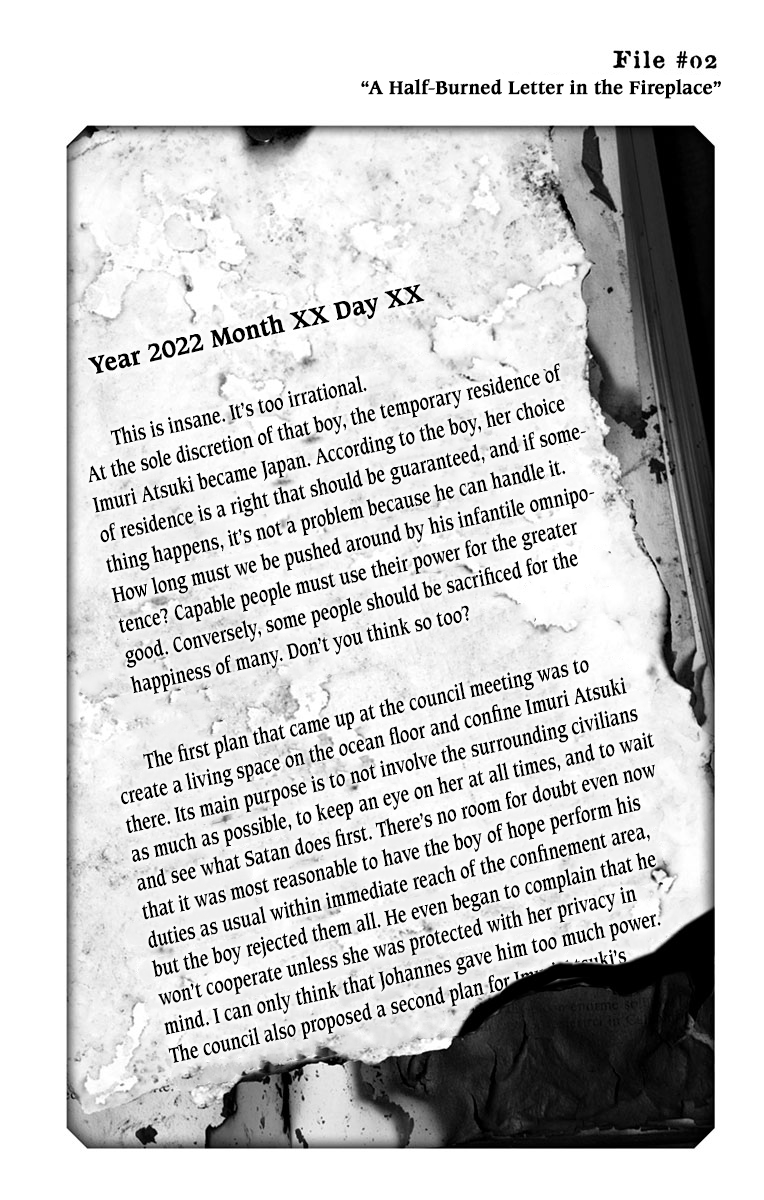 File #02
“A Half-Burned Letter in the Fireplace”
Year 2022 Month XX Day XX
This is insane. It’s too irrational.
At the sole discretion of that boy, the temporary residence of
Imuri Atsuki became Japan. According to the boy, her choice
of residence is a right that should be guaranteed, and if some-
thing happens, it’s not a problem because he can handle it.
How long must we be pushed around by his infantile omnipo-
tence? Capable people must use their power for the greater
good. Conversely, some people should be sacrificed for the
happiness of many. Don’t you think so too?
The first plan that came up at the council meeting was to
create a living space on the ocean floor and confine Imuri Atsuki
there. Its main purpose is to not involve the surrounding civilians
as much as possible, to keep an eye on her at all times, and to wait
and see what Satan does first. There’s no room for doubt even now
that it was most reasonable to have the boy of hope perform his
duties as usual within immediate reach of the confinement area,
but the boy rejected them all. He even began to complain that he
won’t cooperate unless she was protected with her privacy in
mind. I can only think that Johannes gave him too much power.
The council also proposed a second plan for